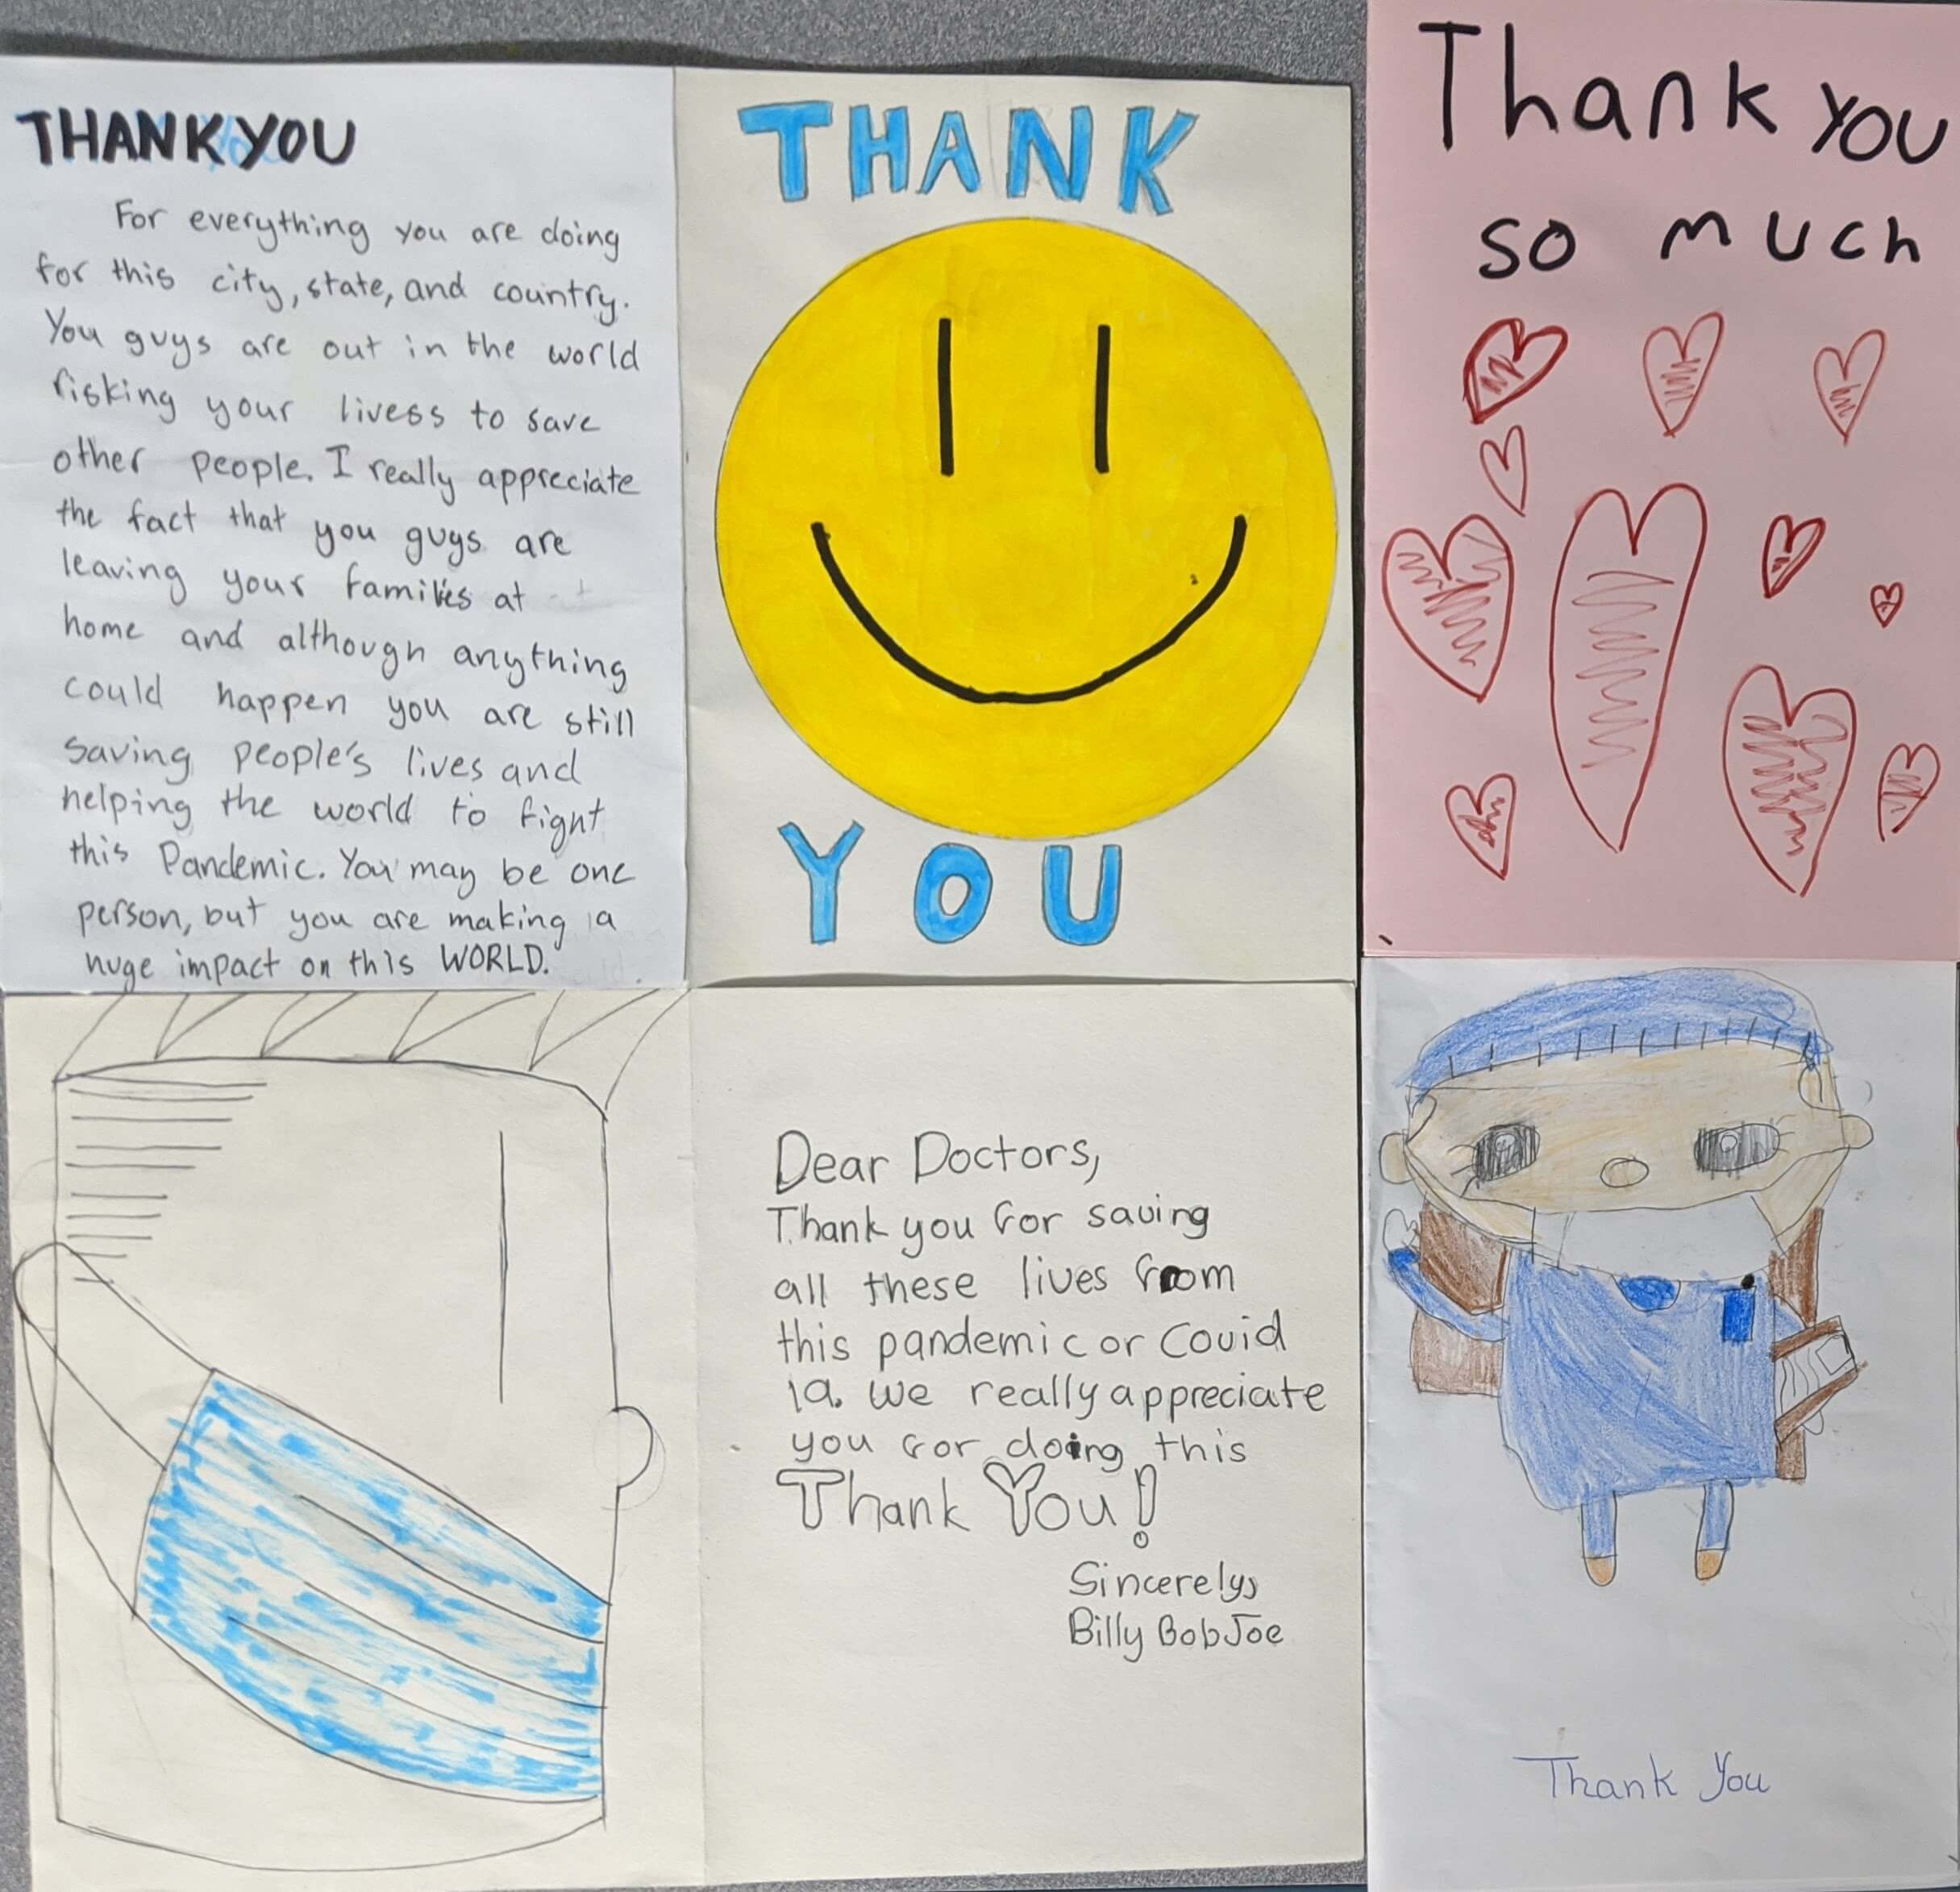 THANK YOU
For everything you are doing
for this city, state, and country.
You guys are out in the world
risking your livess to save
other people. I really appreciate
the fact that you guys are
leaving your families at
home and although anything
could happen you are still
saving people's lives and
helping the world to fight
this Pandemic. You may be one
person, but you are making a
huge impact on this WORLD.
THANK
YOU
Thank you
so much
Dear Doctors,
Thank you for saving
all these lives from
this pandemic or Covid
19. We really appreciate
you for doing this
Thank You!
Sincerely,
Billy Bob Joe
Thank You